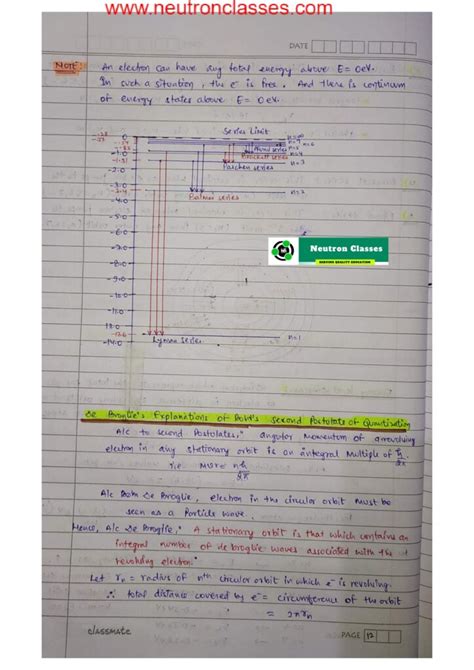 www.neutronclasses.com
DATE
NOTE: An electron can have any total energy above E = 0 eV.
In such a situation, the e⁻ is free. And there is continuum
of energy states above E = 0 eV.
Series Limit
0
n=∞
n=6
Pfund series
Brackett series
n=4
-1.0
Paschen series
n=3
-2.0
-3.0
n=2
Balmer series
-4.0
-5.0
-6.0
Neutron Classes
-7.0
-8.0
-9.0
-10.0
-11.0
12.0
-13.6
n=1
-14.0
Lyman Series
De Broglie's Explanations of Bohr's second Postulate of Quantisation
A/c to second Postulates, " angular Momentum of a revolving
electron in any stationary orbit is an integral Multiple of h/2π
i.e. mvr = nh/2π
A/c from De Broglie, electron in the circular orbit must be
seen as a Particle wave.
Hence, A/c De Broglie, " A stationary orbit is that which contains an
integral number of de broglie waves associated with the
revolving electron.
Let rₙ = radius of nth circular orbit in which e⁻ is revolving.
∴ total distance covered by e⁻ = circumference of the orbit
= 2πrₙ
classmate
PAGE 12